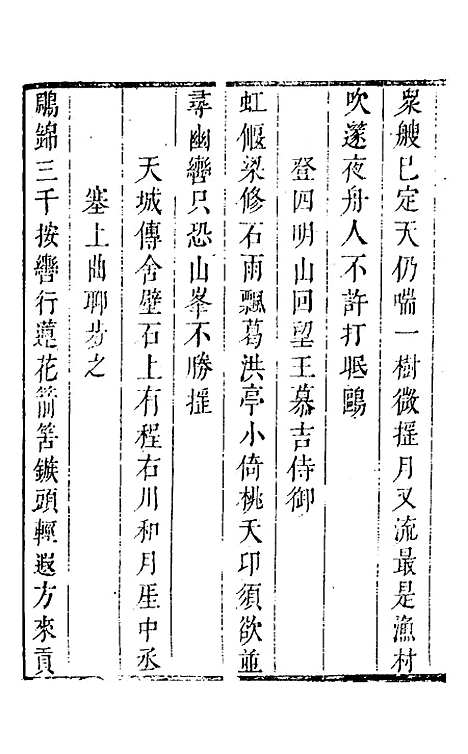 衆艘已定天仍喘一樹微搖月又流最是漁村
吹篴夜舟人不許打眠鷗
登四明山回望王慕吉侍御
虹偃梁修石雨飄葛洪亭小倚桃夭印須欲並
尋幽轡只恐山峯不勝搖
天城傳舍壁石上有程右川和月厓中丞
塞上曲聊步之
鵰錦三千按轡行蓮花箭筈鏃頭輕遐方來貢